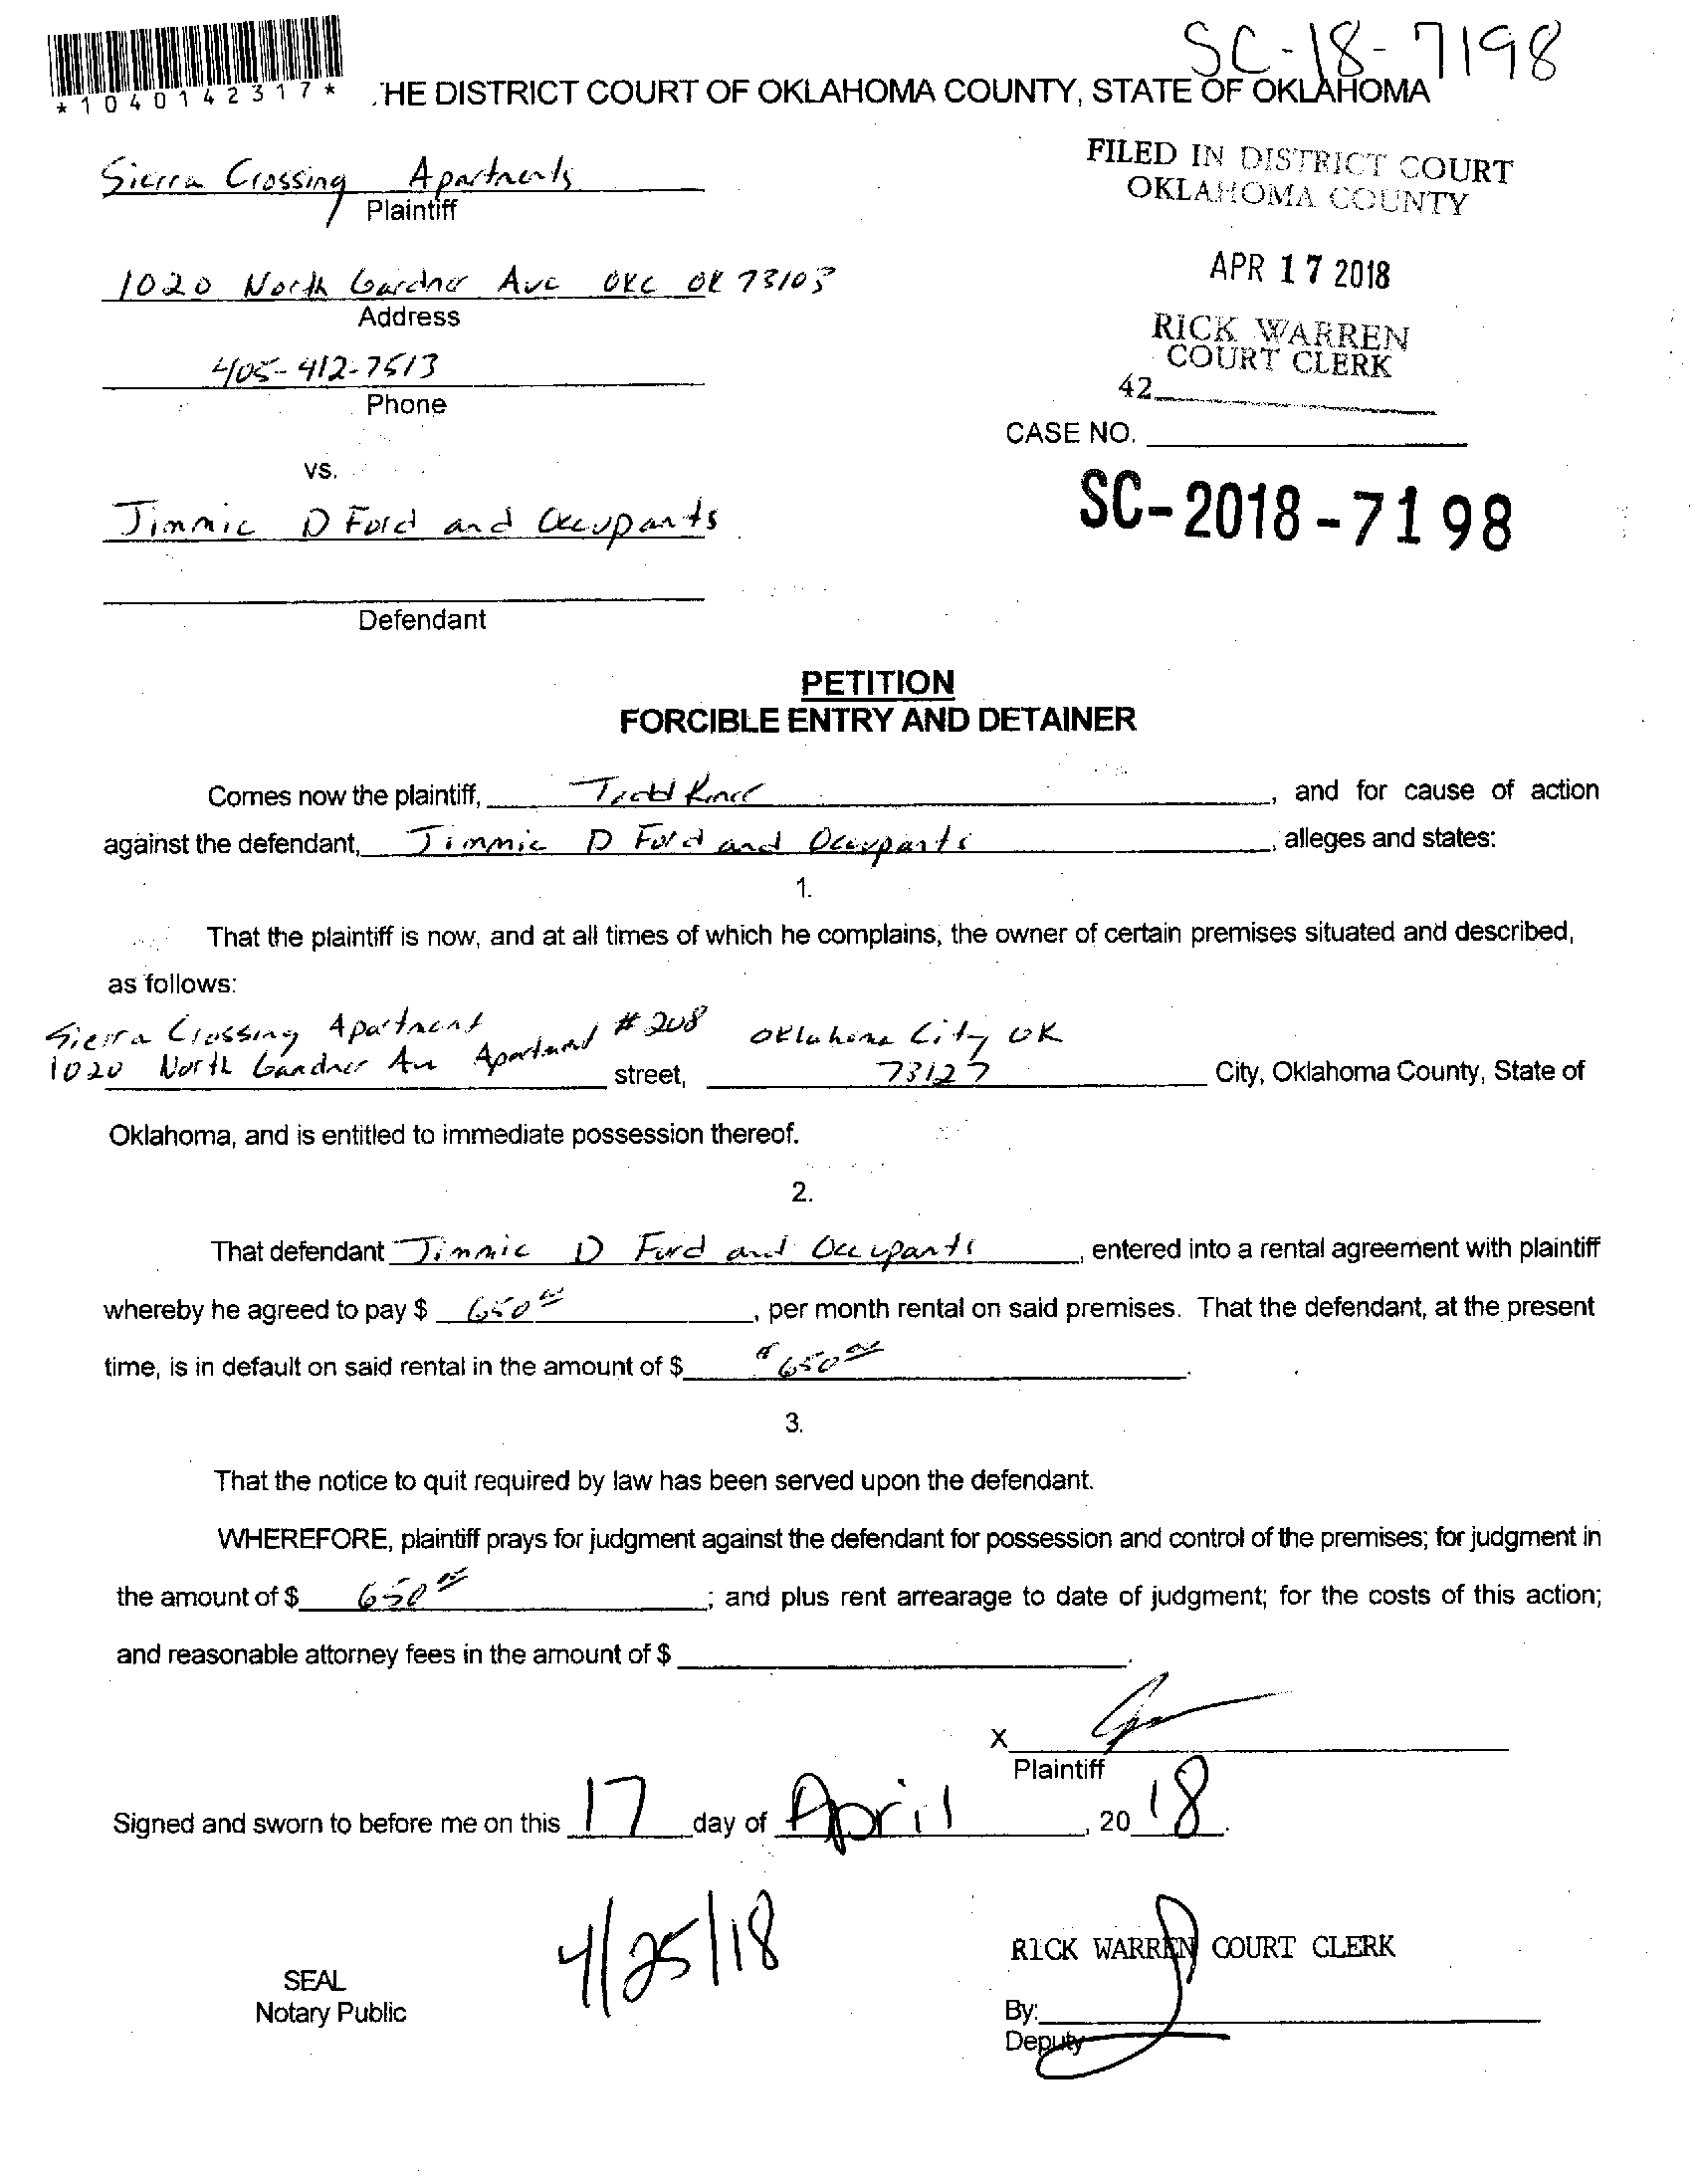 SC-18-7198
*1040142317*
HE DISTRICT COURT OF OKLAHOMA COUNTY, STATE OF OKLAHOMA
Sierra Crossing Apartments
Plaintiff
FILED IN DISTRICT COURT
OKLAHOMA COUNTY
1020 North Gardner Ave OKC OK 73103
Address
APR 17 2018
RICK WARREN
COURT CLERK
405-412-7513
Phone
42
CASE NO.
vs.
SC-2018-7198
Jimmie D Ford and Occupants
Defendant
PETITION
FORCIBLE ENTRY AND DETAINER
Comes now the plaintiff, Todd, and for cause of action
against the defendant, Jimmie D Ford and Occupants, alleges and states:
1.
That the plaintiff is now, and at all times of which he complains, the owner of certain premises situated and described,
as follows:
Sierra Crossing Apartment
1020 North Gardner Av Apartment #208 street, Oklahoma City OK 73127 City, Oklahoma County, State of
Oklahoma, and is entitled to immediate possession thereof.
2.
That defendant Jimmie D Ford and Occupants, entered into a rental agreement with plaintiff
whereby he agreed to pay $ 650 00, per month rental on said premises. That the defendant, at the present
time, is in default on said rental in the amount of $ $650 00.
3.
That the notice to quit required by law has been served upon the defendant.
WHEREFORE, plaintiff prays for judgment against the defendant for possession and control of the premises; for judgment in
the amount of $ 650 00; and plus rent arrearage to date of judgment; for the costs of this action;
and reasonable attorney fees in the amount of $ .
X
Plaintiff
Signed and sworn to before me on this 17 day of April, 2018.
4/25/18
RICK WARREN COURT CLERK
SEAL
Notary Public
By:
Deputy